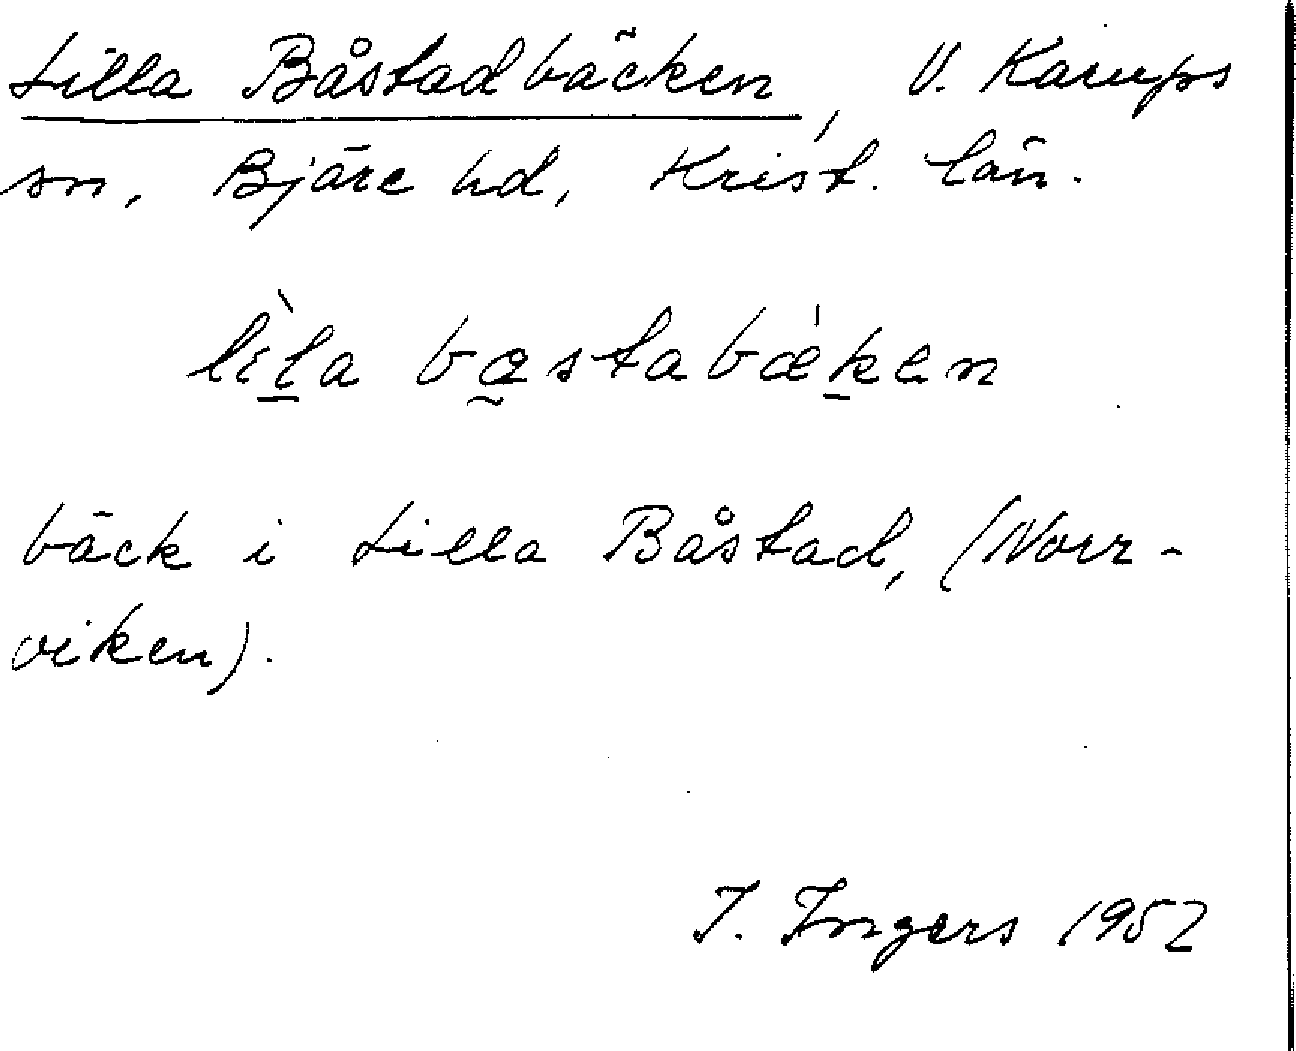 Lilla Båstadbäcken, V. Karups
sn, Bjäre hd, Krist. län.
lìla bastabæken
bäck i Lilla Båstad, (Norr-
viken).
I. Ingers 1952